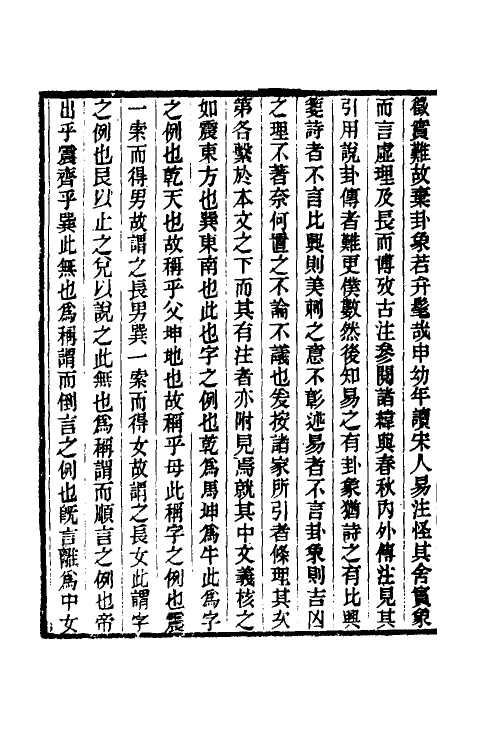 徵實難故棄卦象若弁髦哉申幼年讀宋人易注怪其舍實象
而言虛理及長而博攷古注參閱諸緯與春秋內外傳注見其
引用說卦傳者難更僕數然後知易之有卦象猶詩之有比興
箋詩者不言比興則美刺之意不彰述易者不言卦象則吉凶
之理不著奈何置之不論不議也爰按諸家所引者條理其次
第各繫於本文之下而其有注者亦附見焉就其中文義核之
如震東方也巽東南也此也字之例也乾爲馬坤爲牛此爲字
之例也乾天也故稱乎父坤地也故稱乎母此稱字之例也震
一索而得男故謂之長男巽一索而得女故謂之長女此謂字
之例也艮以止之兌以說之此無也爲稱謂而順言之例也帝
出乎震齊乎巽此無也爲稱謂而倒言之例也旣言離爲中女